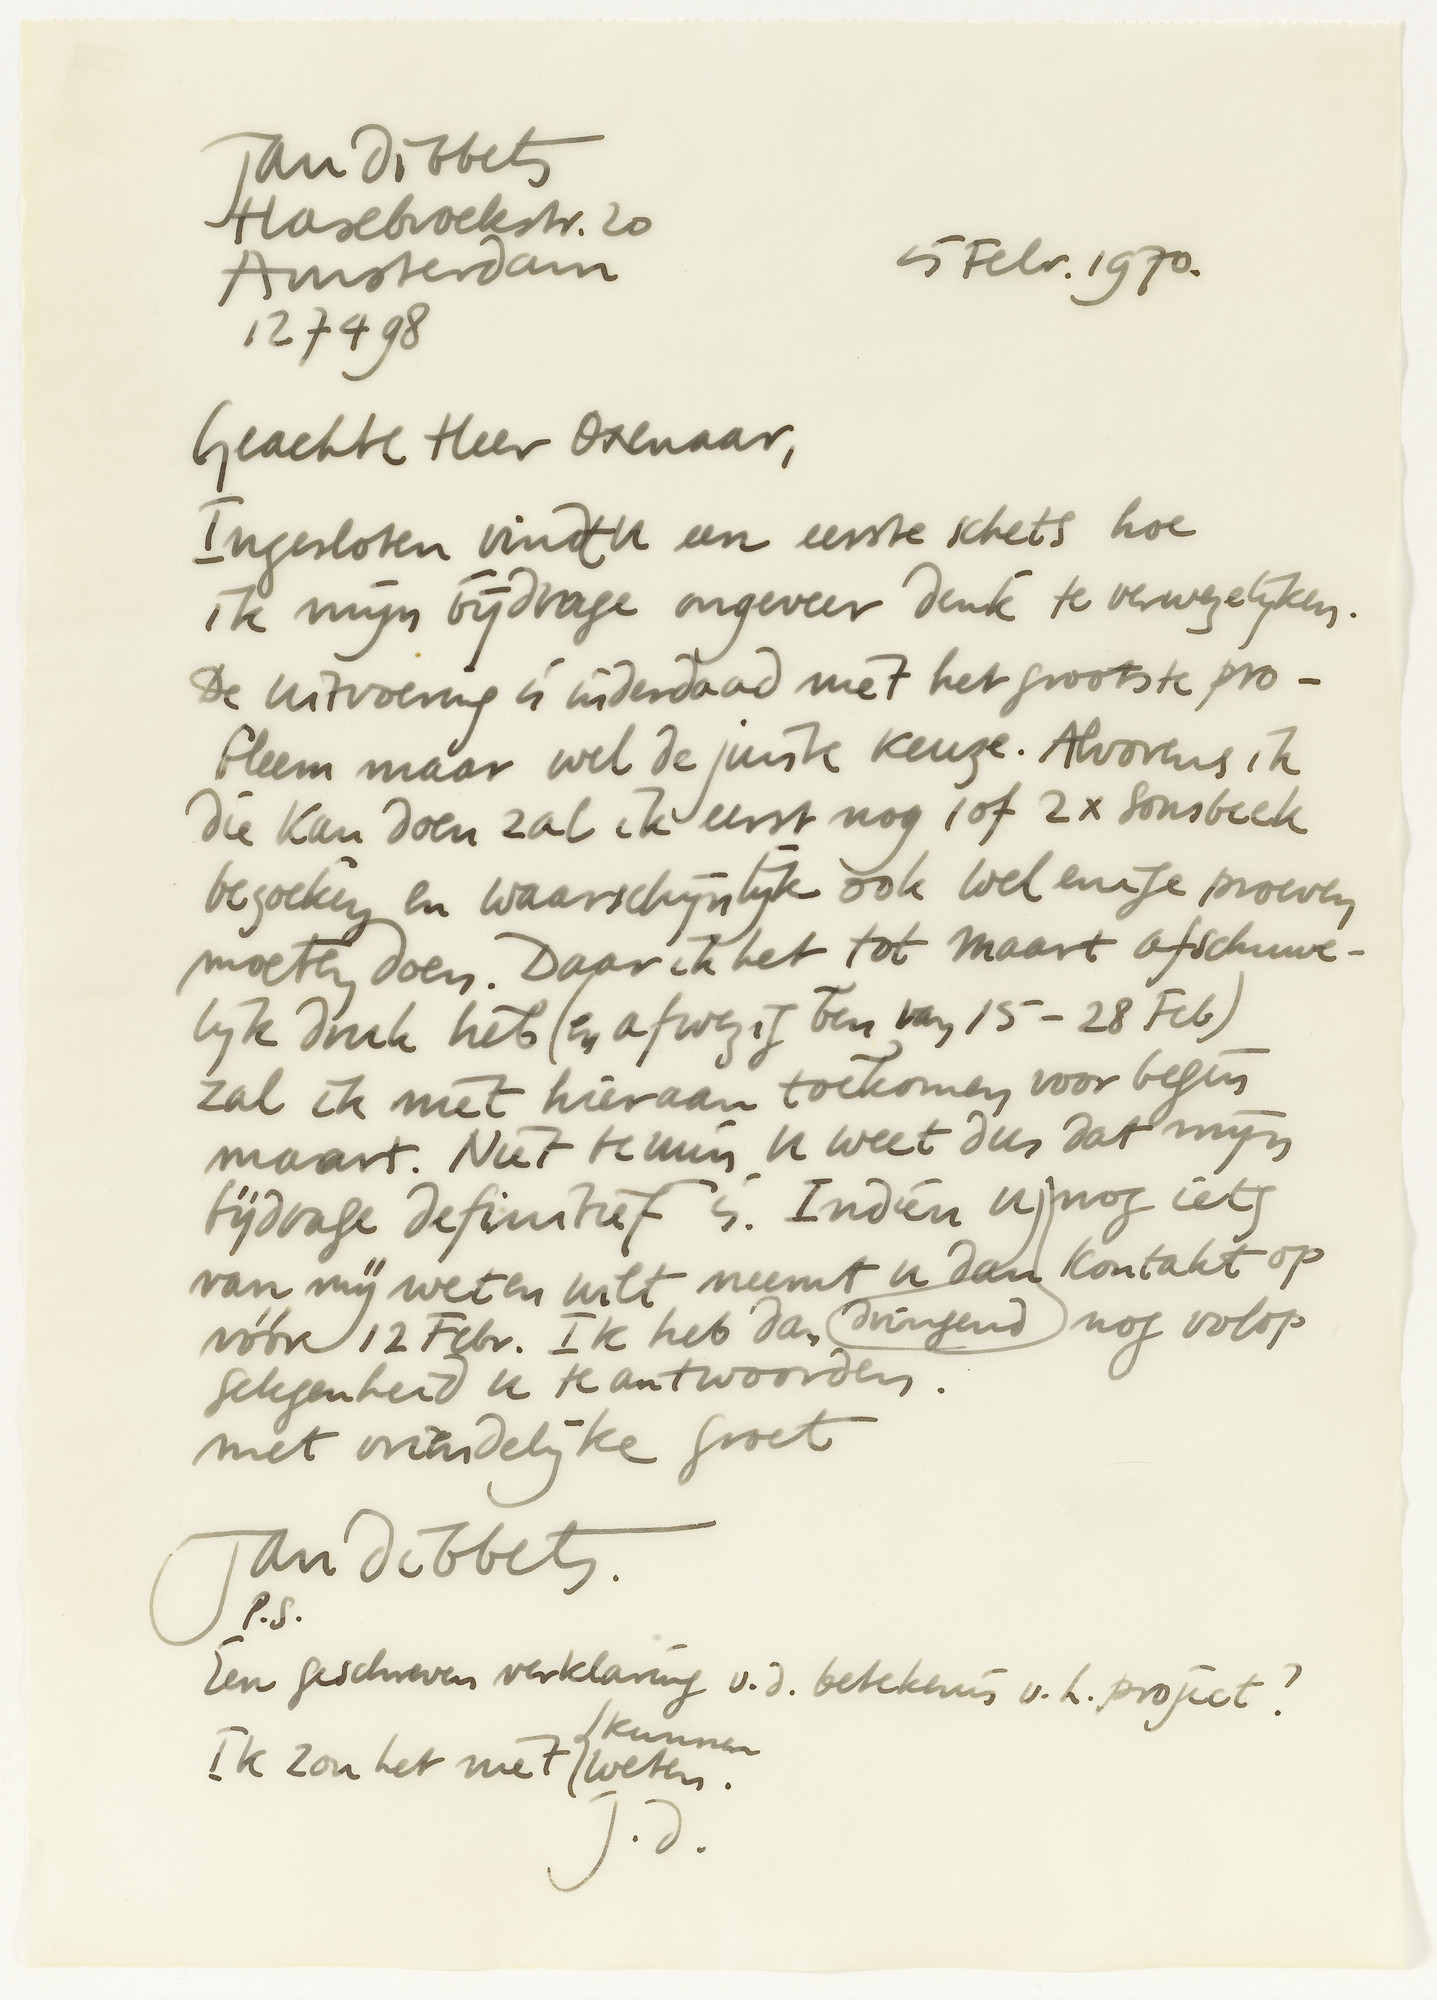 Jan Dibbets
Hasebroekstr. 20
Amsterdam
127498
5 Febr. 1970.
Geachte Heer Oxenaar,
Ingesloten vindt u een eerste schets hoe
ik mijn bijdrage ongeveer denk te verwezelijken.
De uitvoering is inderdaad niet het grootste pro-
bleem maar wel de juiste keuze. Alvorens ik
die kan doen zal ik eerst nog 1 of 2 x Sonsbeek
bezoeken en waarschijnlijk ook wel enige proeven
moeten doen. Daar ik het tot maart afschuwe-
lijk druk heb (en afwezig ben van 15 - 28 Feb)
zal ik niet hieraan toekomen voor begin
maart. Niet temin u weet dus dat mijn
bijdrage definitief is. Indien u nog iets
van mij weten wilt neemt u dan kontakt op
vóór 12 Febr. Ik heb dan dringend nog volop
gelegenheid u te antwoorden.
met vriendelijke groet
Jan Dibbets.
P.S.
Een geschreven verklaring v.d. betekenis v.h. project?
Ik zou het niet kunnen
weten.
J.D.